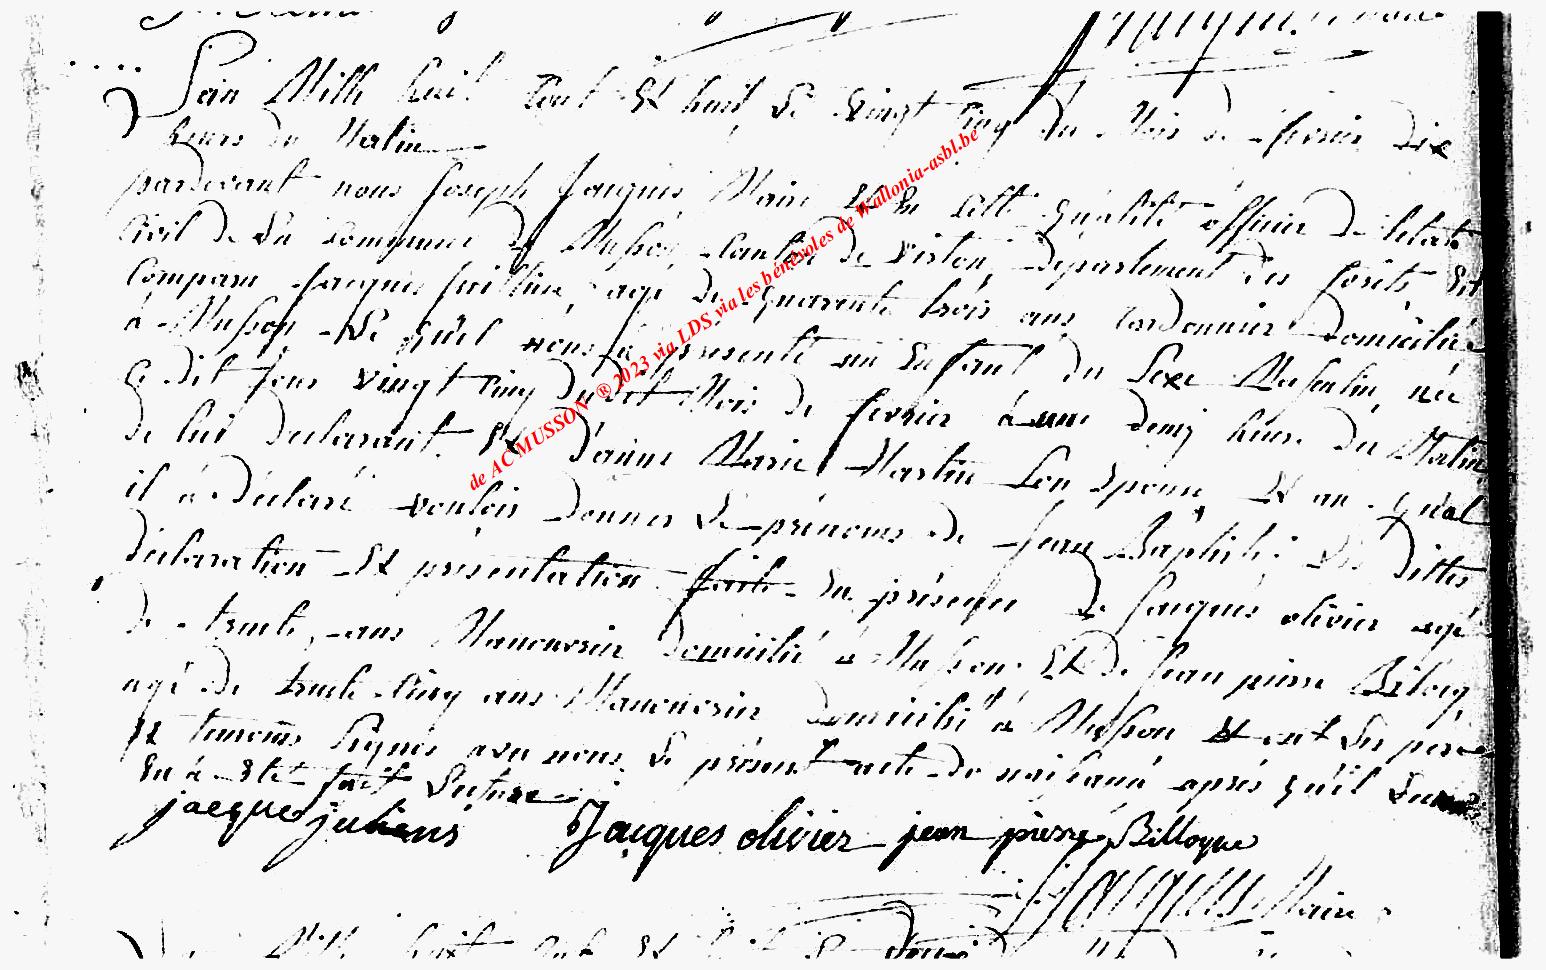 L'an Mille huit Cent Et huit, Le Vingt Cinq du Mois de fevrier dix
heures du Matin
pardevant nous Joseph Jacques Maire Et En Cette qualité officier de l'état
Civil de La commune de Musson, Canton de Virton, département des forêts, Est
Comparu Jacques Juilliens, agé de quarente trois ans cordonnier domicilié
à Musson, Le quel nous à présenté un Enfant du Sexe Masculin, né
ce dit jour vingt cinq du dit Mois de fevrier à une demy heure du Matin
de lui declarant Et d'anne Marie Martin Son Epouse, Et au quel
il à déclaré vouloir donner Le prénoms de Jean Baptiste. Les dittes
déclaration Et présentation faite En présence de Jacques olivier agé
de trente, ans Manouvrier domicilié à Musson Et de Jean pierre Bilocq,
agé de trente Cinq ans Manouvrier domicilié à Musson Et ont Les père
Et temoins Signés avec nous, Le présent acte de naissance après qu'il Leurs
En à Eté fait Lecture
jacque juliens Jacques olivier jean pierre Billoque
Jacques Maire
de AC MUSSON ® 2023 via LDS via les bénévoles de Wallonia-asbl.be